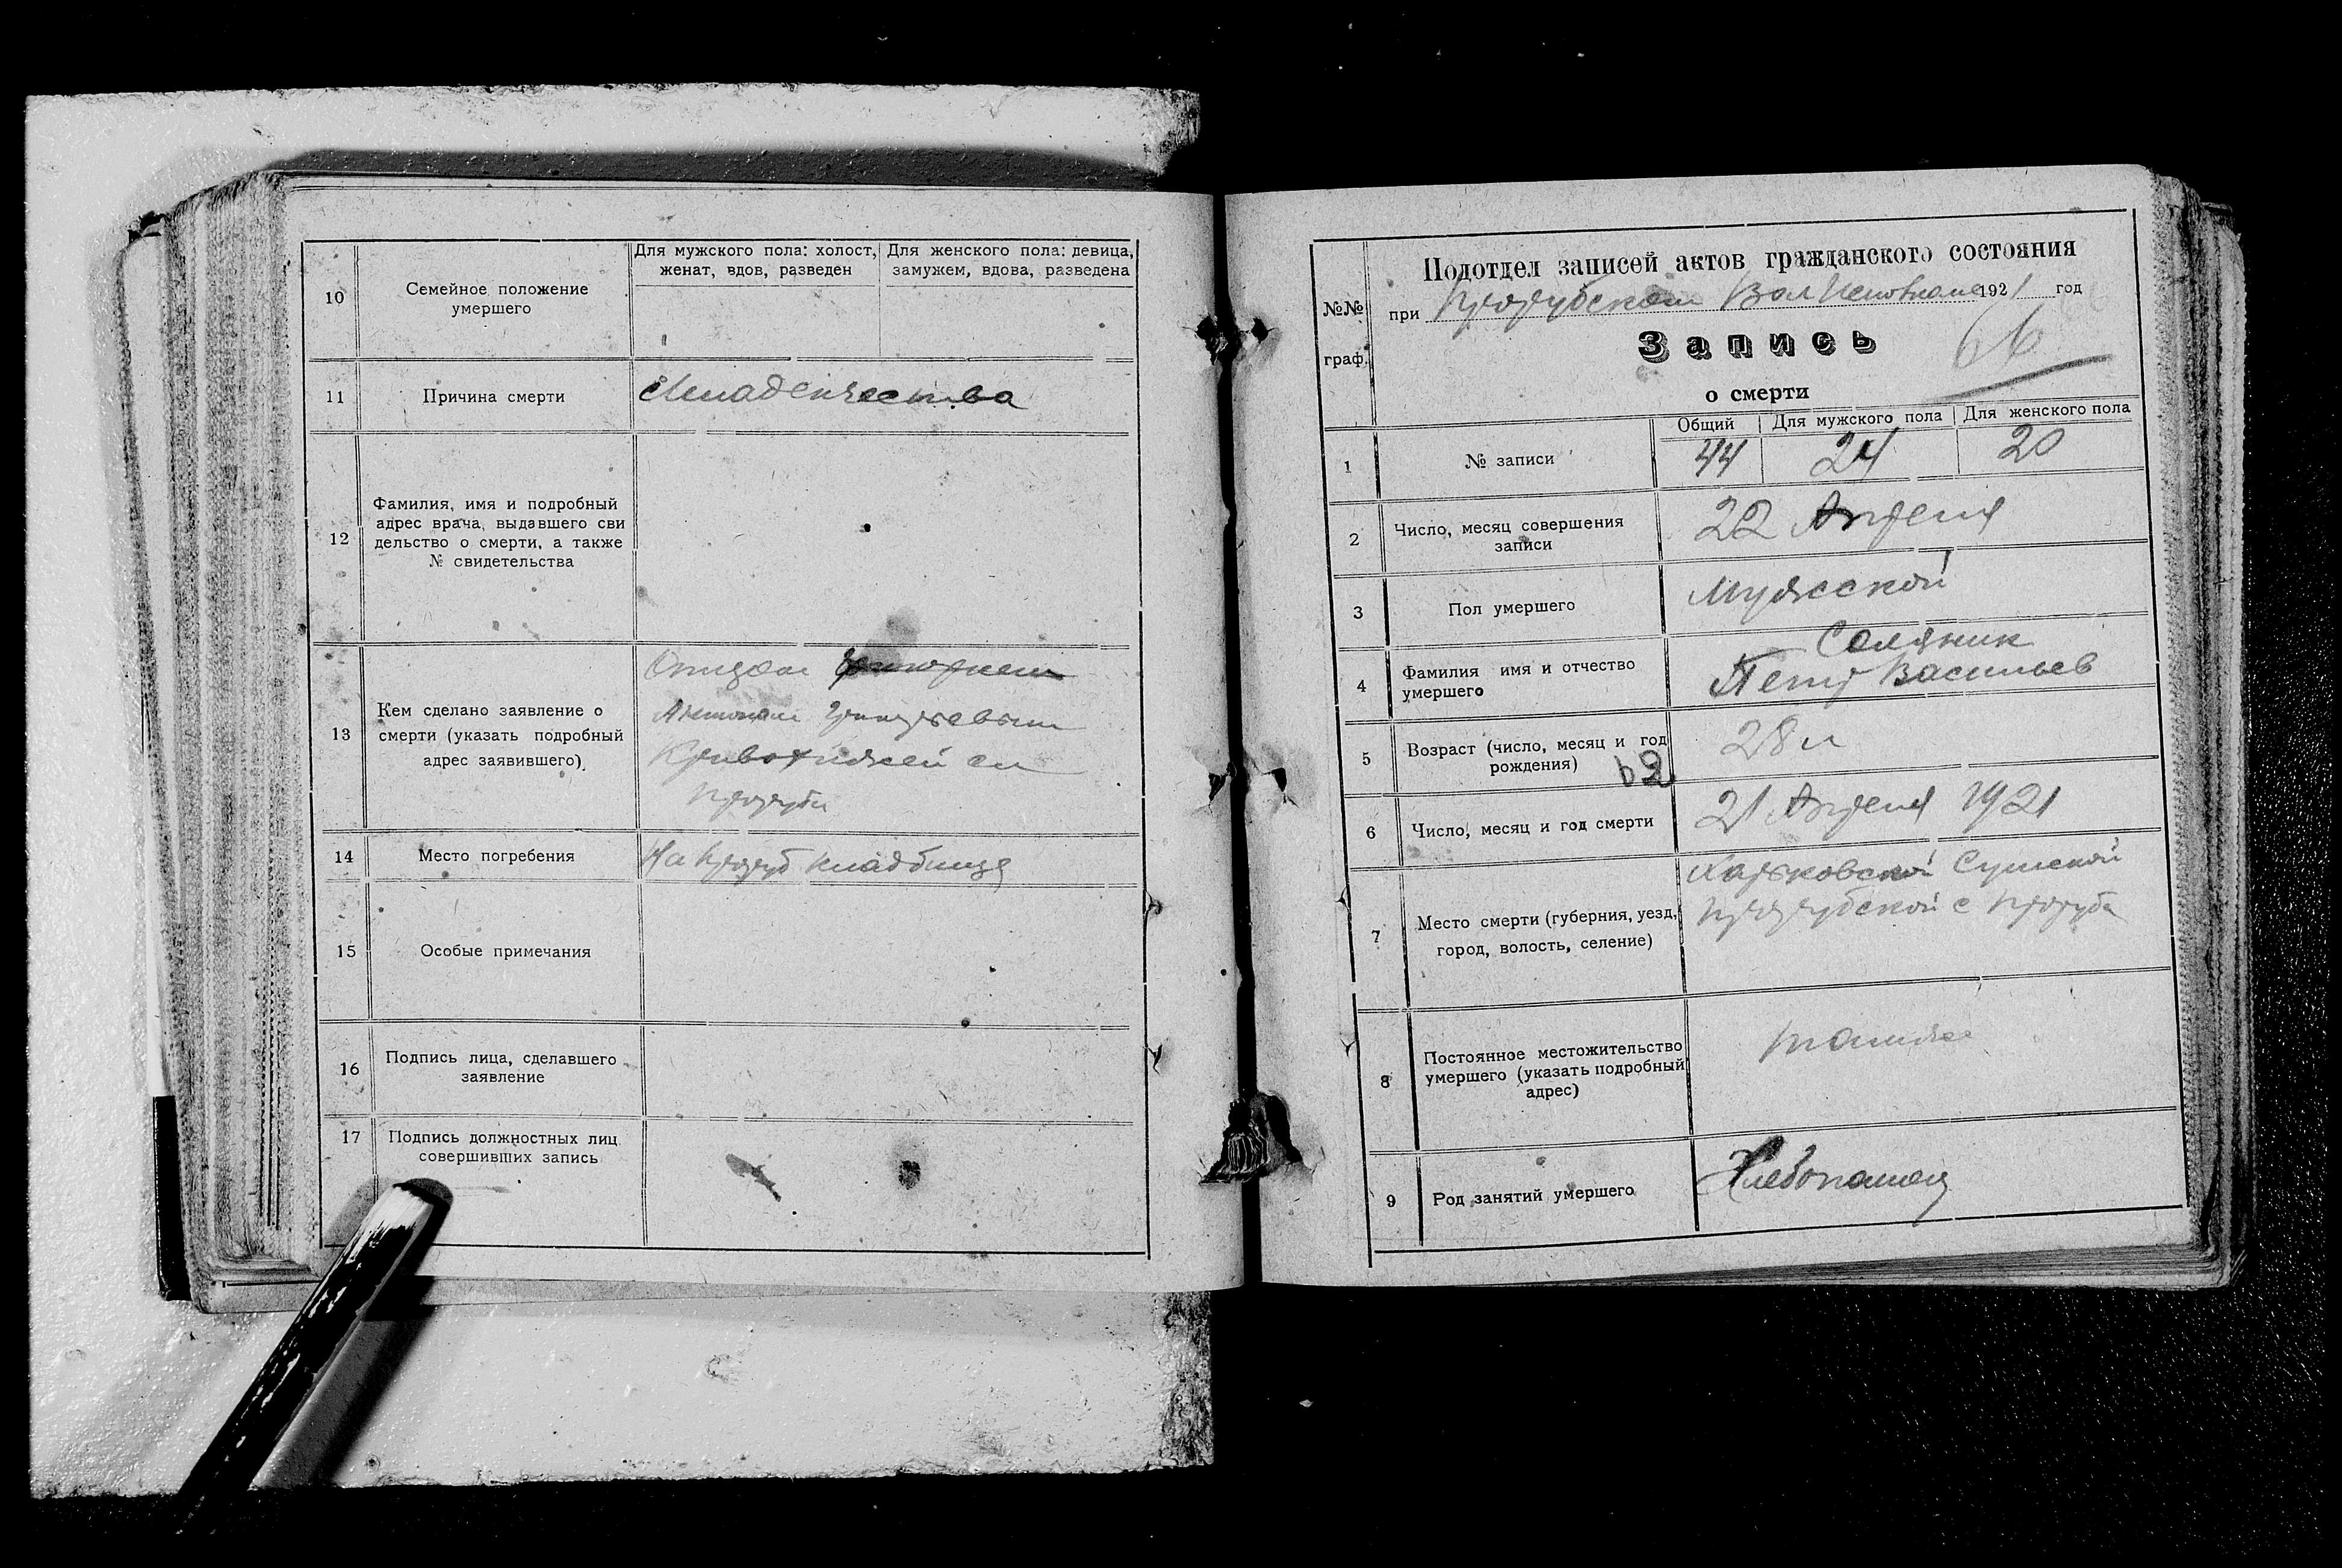 10
Семейное положение
умершего
Для мужского пола: холост,
женат, вдов, разведен
Для женского пола: девица,
замужем, вдова, разведена
11
Причина смерти
Младенчества
12
Фамилия, имя и подробный
адрес врача, выдавшего сви
дельство о смерти, а также
№ свидетельства
13
Кем сделано заявление о
смерти (указать подробный
адрес заявившего)
Отцом
Антоном Григорьевым
Кривотишей
14
Место погребения
На кладбище
15
Особые примечания
16
Подпись лица, сделавшего
заявление
17
Подпись должностных лиц
совершивших запись
№№
граф.
Подотдел записей актов гражданского состояния
при Прорубском Вол Исполкоме 1921 год
Запись
66
о смерти
1
№ записи
Общий
Для мужского пола
Для женского пола
44
24
20
2
Число, месяц совершения
записи
22 Апреля
3
Пол умершего
Мужской
4
Фамилия имя и отчество
умершего
Соляник
Петр Васильев
5
Возраст (число, месяц и год
рождения)
28 л
6
Число, месяц и год смерти
21 Апреля 1921
7
Место смерти (губерния, уезд,
город, волость, селение)
Харьковской Сумской
Прорубской с Проруба
8
Постоянное местожительство
умершего (указать подробный
адрес)
9
Род занятий умершего
Хлебопашец